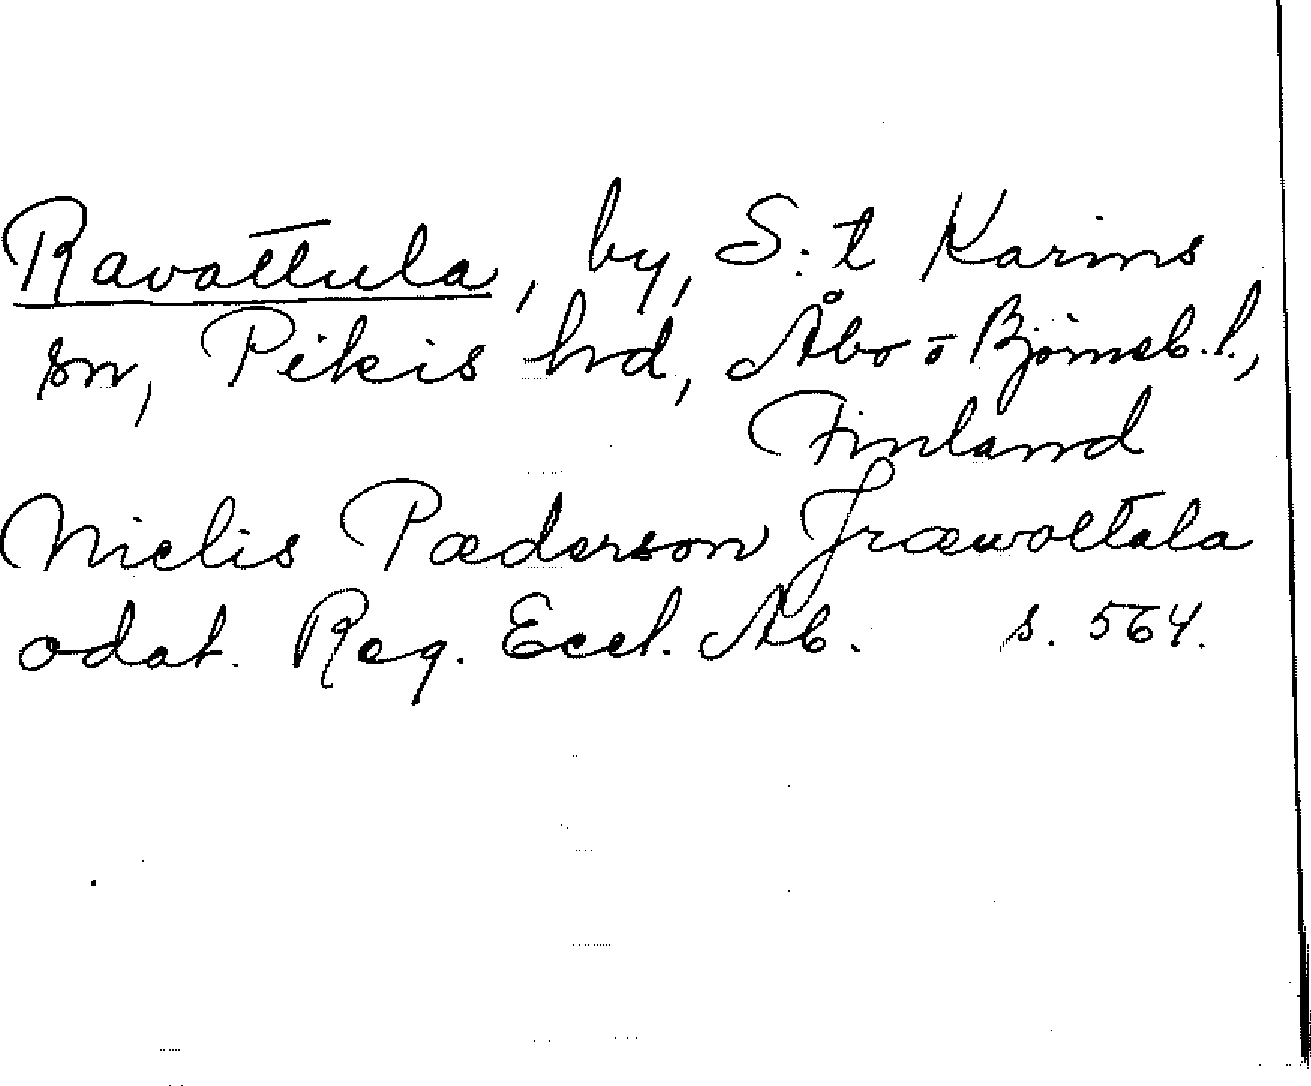 Ravattula, by, S:t Karins
sn, Pikis hd, Åbo o Björneb. l.,
Finland
Nielis Pædersson J ræwottala
odat. Reg. Eccl. Ab. s. 564.